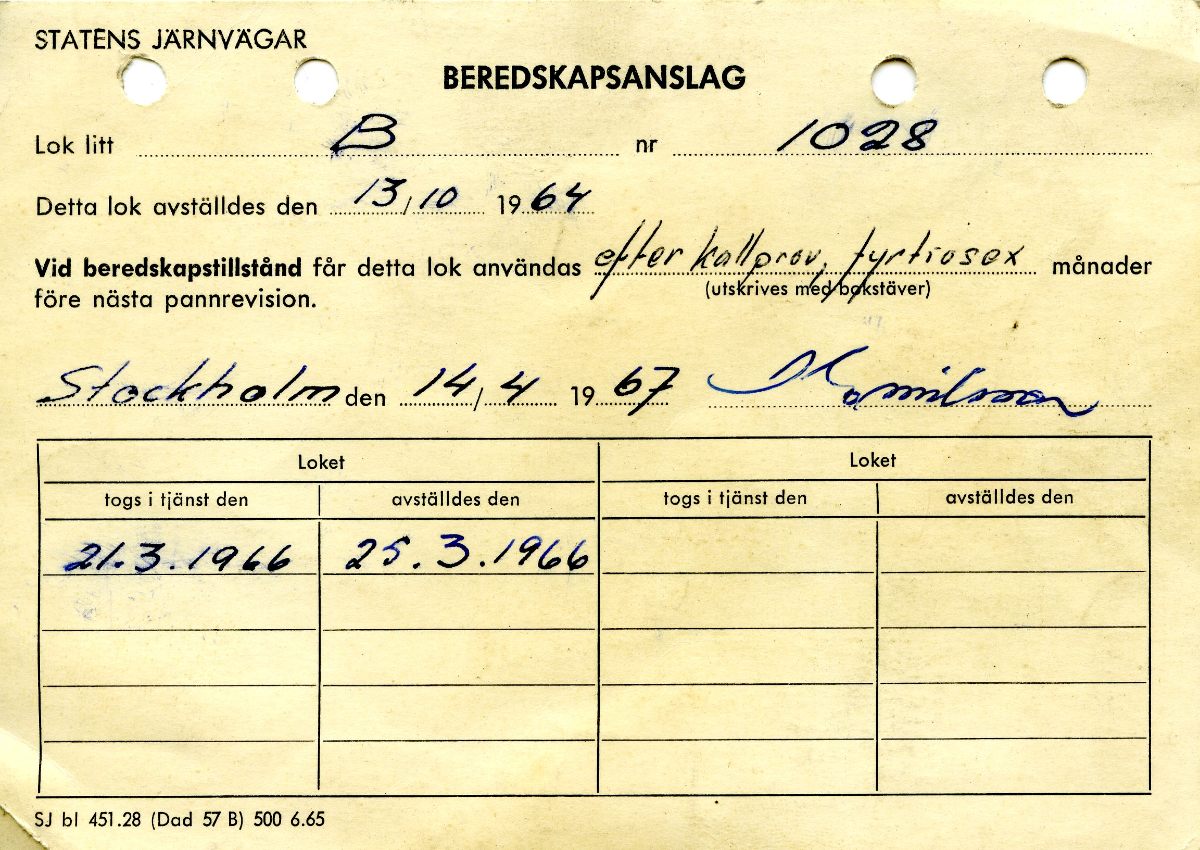 STATENS JÄRNVÄGAR
BEREDSKAPSANSLAG
Lok litt B nr 1028
Detta lok avställdes den 13/10 1964
Vid beredskapstillstånd får detta lok användas efter kallprov, fyrtiosex månader
(utskrives med bokstäver)
före nästa pannrevision.
Stockholm den 14/4 1967
Loket Loket
togs i tjänst den avställdes den togs i tjänst den avställdes den
21.3.1966 25.3.1966
SJ bl 451.28 (Dad 57 B) 500 6.65